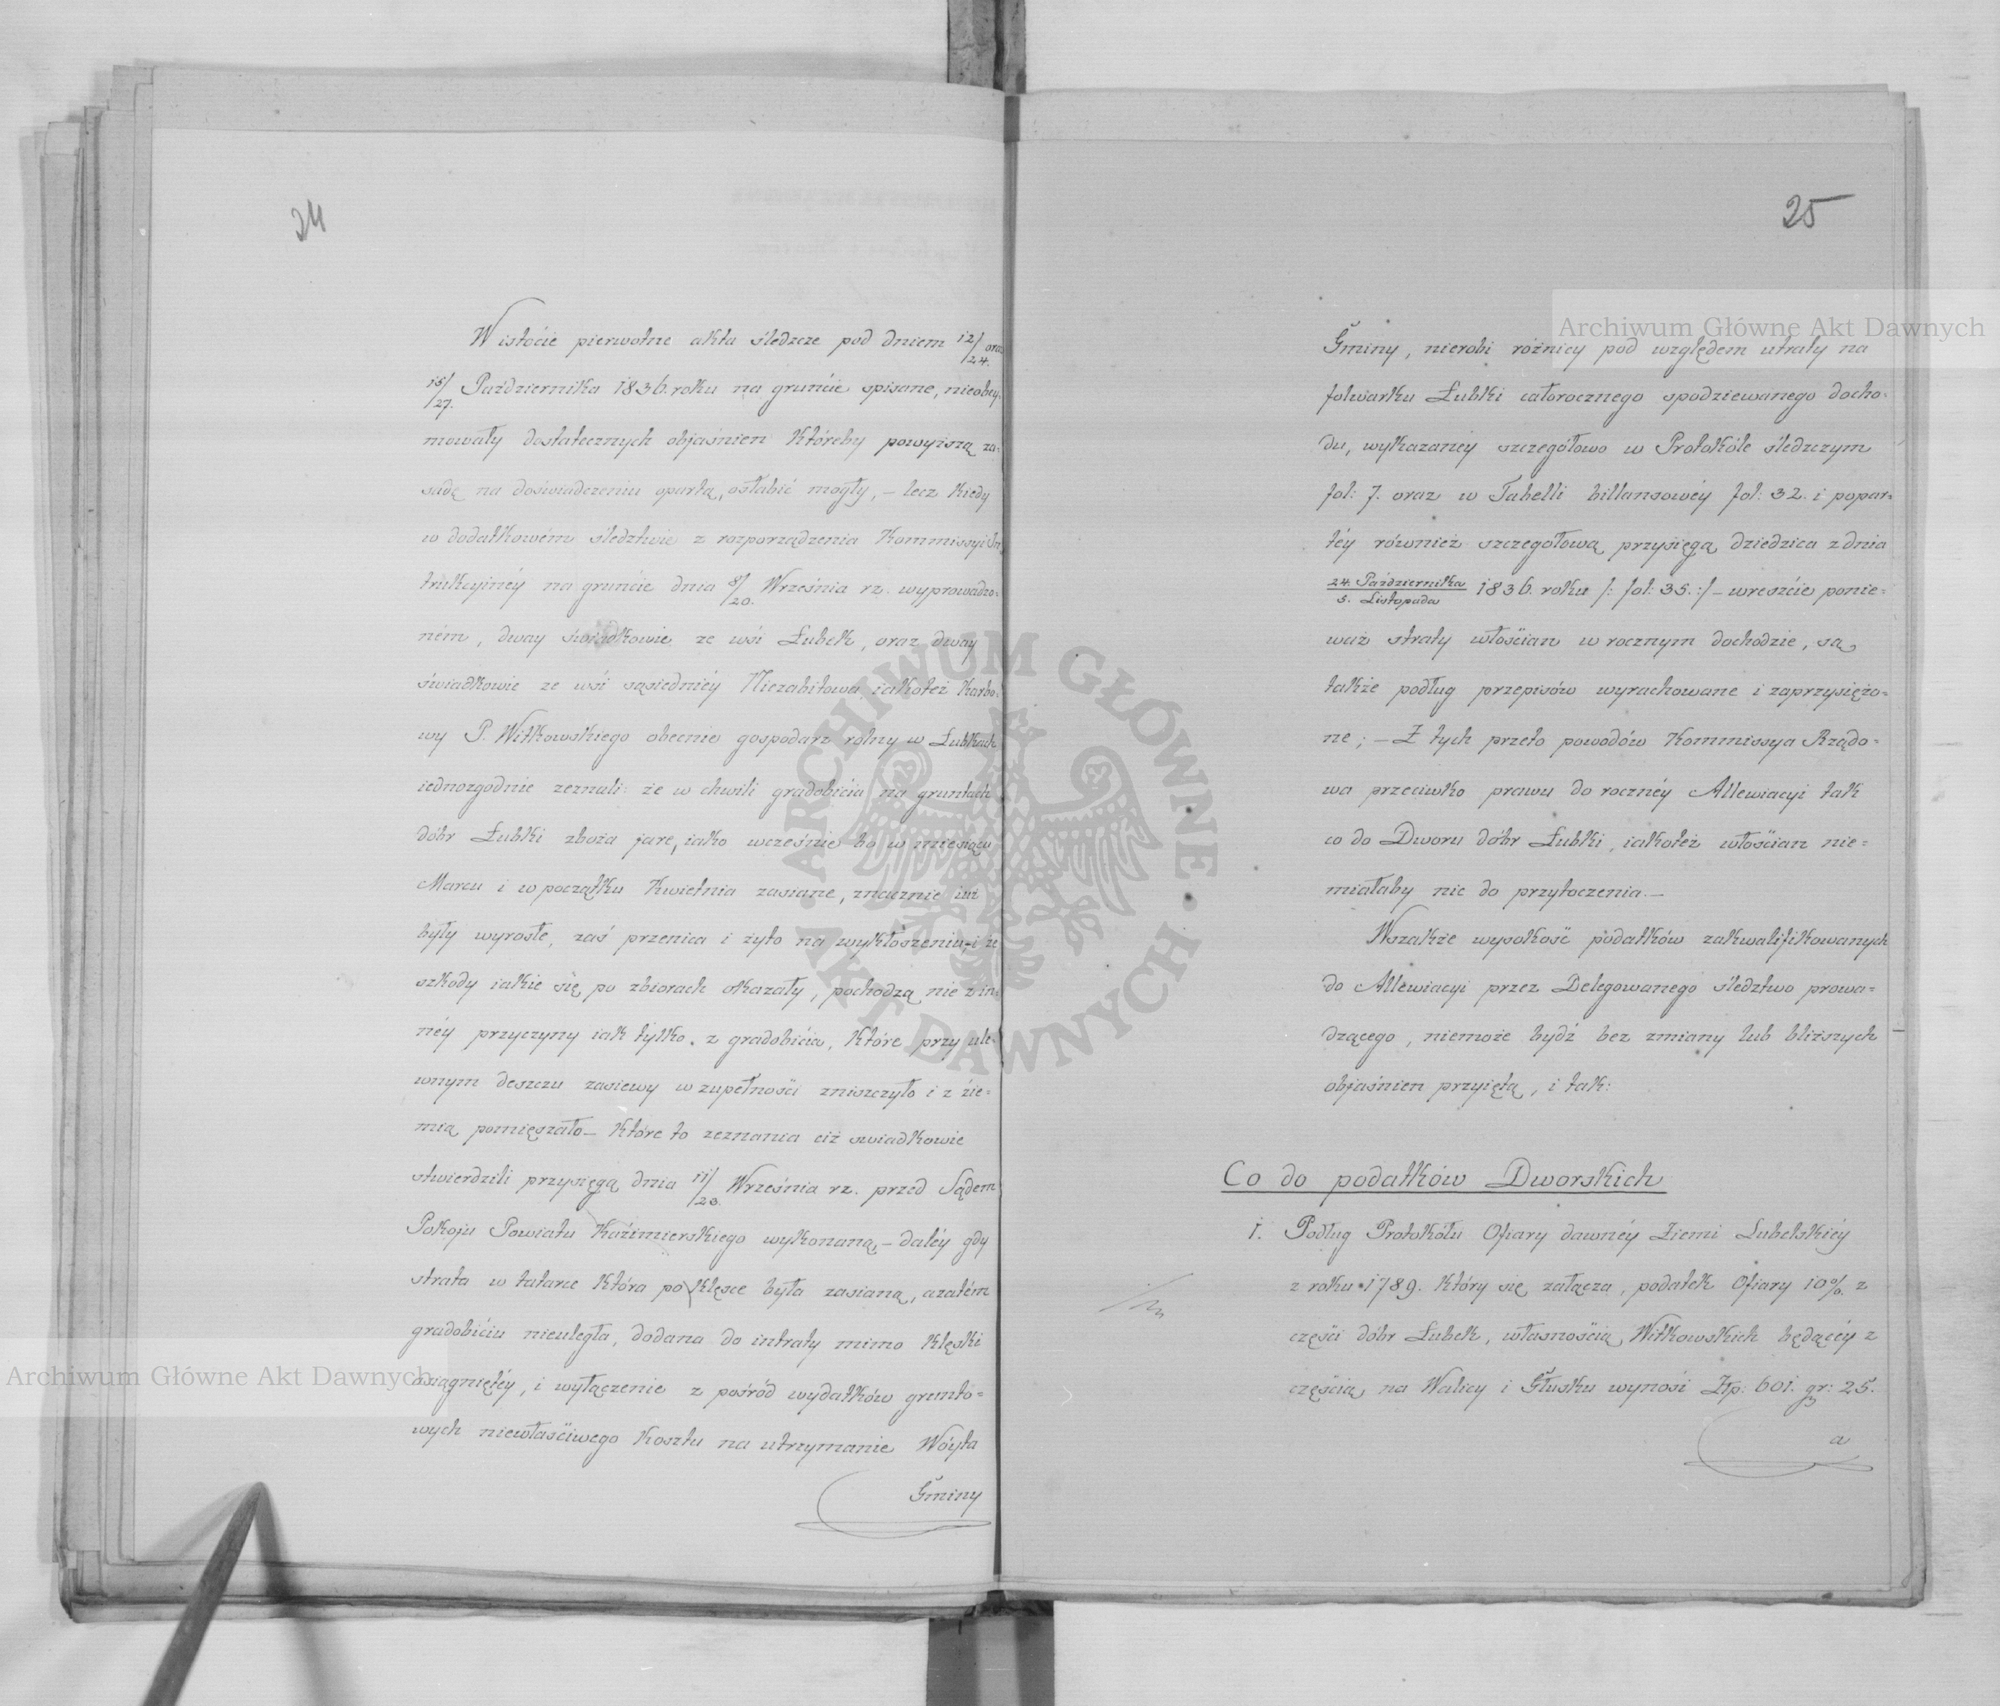 24
W istocie pierwotne akta śledcze pod dniem 12/24. oraz
15/27. Października 1836. roku na gruncie spisane, nieobey-
mowały dostatecznych objaśnien któreby powyższą za-
sadę na doświadczeniu opartą, osłabić mogły, – lecz kiedy
w dodatkowém śledztwie z rozporządzenia Kommissyi In-
trukcyinéy na gruncie dnia 8/20. Września rz. wyprowadzo-
ném, dway świadkowie ze wsi Łubek, oraz dway
świadkowie ze wsi sąsiedniéy Niezabitowa iakoteż karbo-
wy P. Witkowskiego obecnie gospodarz rolny w Łubkach
iednozgodnie zeznali: że w chwili gradobicia na gruntach
dóbr Łubki zboża jare, iako wcześnie bo w miesiącu
Marcu i w początku Kwietnia zasiane, znacznie iuż
były wyrosłe, zaś przenica i żyto na wykłoszeniu – i że
szkody iakie się po zbiorach okazały, pochodzą nie z in-
néy przyczyny iak tylko z gradobicia, które przy ule-
wnym deszczu zasiewy w zupełności zniszczyło i z zie-
mią pomięszało – które to zeznania ciż swiadkowie
stwierdzili przysięgą dnia 11/23. Września rz. przed Sądem
Pokoju Powiatu Kazimierskiego wykonaną, – daléy gdy
strata w tatarce która po klęsce była zasianą, azatém
gradobiciu nieuległa, dodana do intraty mimo klęski
osiągniętéy, i wyłączenie z pośród wydatków grunto-
wych niewłaściwego kosztu na utrzymanie Wóyta
Gminy
25
Gminy, nierobi różnicy pod względem utraty na
folwarku Łubki całorocznego spodziewanego docho-
du, wykazanéy szczegółowo w Protokóle śledczym
fol: 7. oraz w Tabelli billansowéy fol: 32. i popar-
téy również szczegołową przysięgą dziedzica z dnia
24. Października / 5. Listopada 1836. roku /: fol: 35. :/ – wreszcie ponie-
waż straty włościan w rocznym dochodzie, są
także podług przepisów wyrachowane i zaprzysiężo-
ne; – Z tych przeto powodów Kommissya Rządo-
wa przeciwko prawu do rocznéy Allewiacyi tak
co do Dworu dóbr Łubki, iakoteż włościan nie-
miałaby nic do przytoczenia. –
Wszakże wysokość podatków zakwalifikowanych
do Allewiacyi przez Delegowanego śledztwo prowa-
dzącego, niemoże bydź bez zmiany lub bliższych
objaśnien przyiętą, i tak:
Co do podatków Dworskich
1. Podług Protokółu Ofiary dawnéy Ziemi Lubelskiéy
z roku 1789. który się załącza, podatek Ofiary 10%. z
części dóbr Łubek, własnością Witkowskich będącéy z
częścią na Walicy i Głusku wynosi Złp: 601. gr: 25.
a
Archiwum Główne Akt Dawnych
Archiwum Główne Akt Dawnych
ARCHIWUM GŁÓWNE · AKT DAWNYCH ·